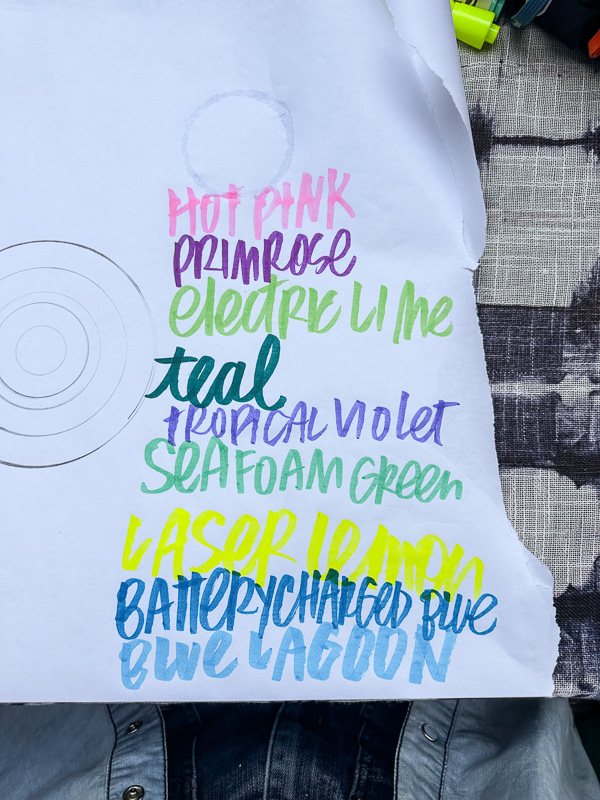 HOT PINK
PRIMROSE
electric LIME
teal
TROPICAL VIOLET
SEAFOAM GREEN
LASER LEMON
BATTERYCHARGED BLUE
BLUE LAGOON